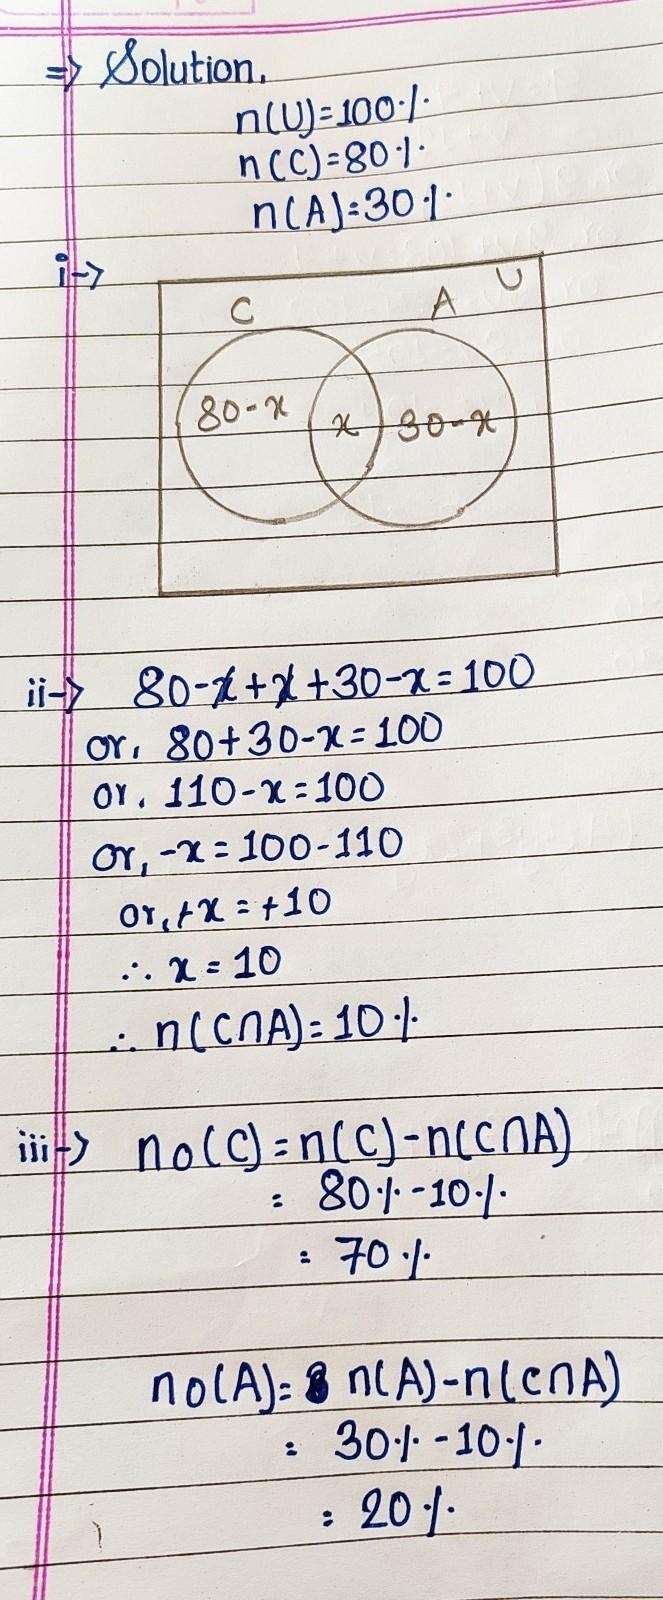 => Solution.
n(U)=100%
n(C)=80%
n(A)=30%
i->
C A U
80-x x 30-x
ii-> 80-x+x+30-x=100
or, 80+30-x=100
or, 110-x=100
or, -x=100-110
or, +x=+10
∴ x=10
∴ n(C∩A)=10%
iii-> no(C)=n(C)-n(C∩A)
= 80%-10%
= 70%
no(A)= n(A)-n(C∩A)
= 30%-10%
= 20%